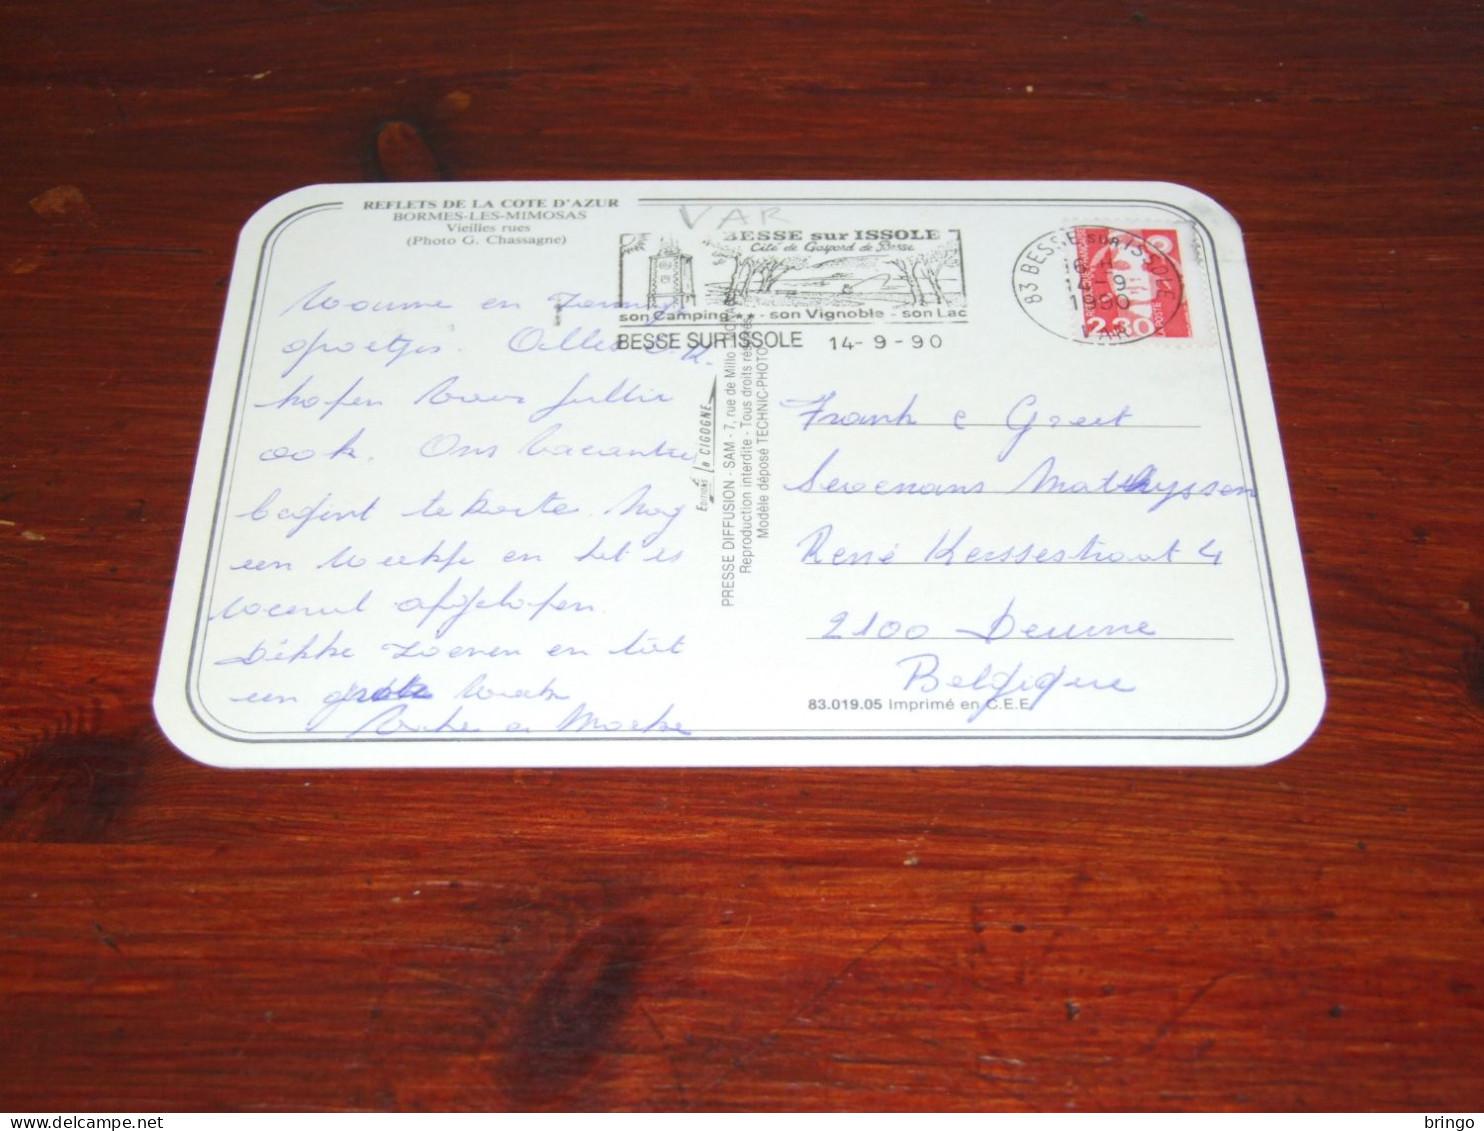 REFLETS DE LA COTE D'AZUR
BORMES-LES-MIMOSAS
Vieilles rues
(Photo G. Chassagne)
VAR
BESSE sur ISSOLE
Cité de Gaspard de Besse
son Camping ** - son Vignoble - son Lac
BESSE SUR ISSOLE 14-9-90
83 BESSE SUR ISSOLE
16 H
14-9
1990
VAR
2,30
POSTE
Warme en
groetjes. Alles O.K.
hopen voor jullie
ook. Ons vacantie
begint te korte. Nog
een weekje en het is
weeral afgelopen.
Dikke zoenen en tot
een week
Editions la CIGOGNE
PRESSE DIFFUSION - SAM - 7, rue de Millo - MONACO
Reproduction interdite - Tous droits réservés
Modèle déposé TECHNIC-PHOTO
Frank & Greet
Sevenans Mathyssen
René 4
2100 Deurne
Belgique
83.019.05 Imprimé en C.E.E.
bringo